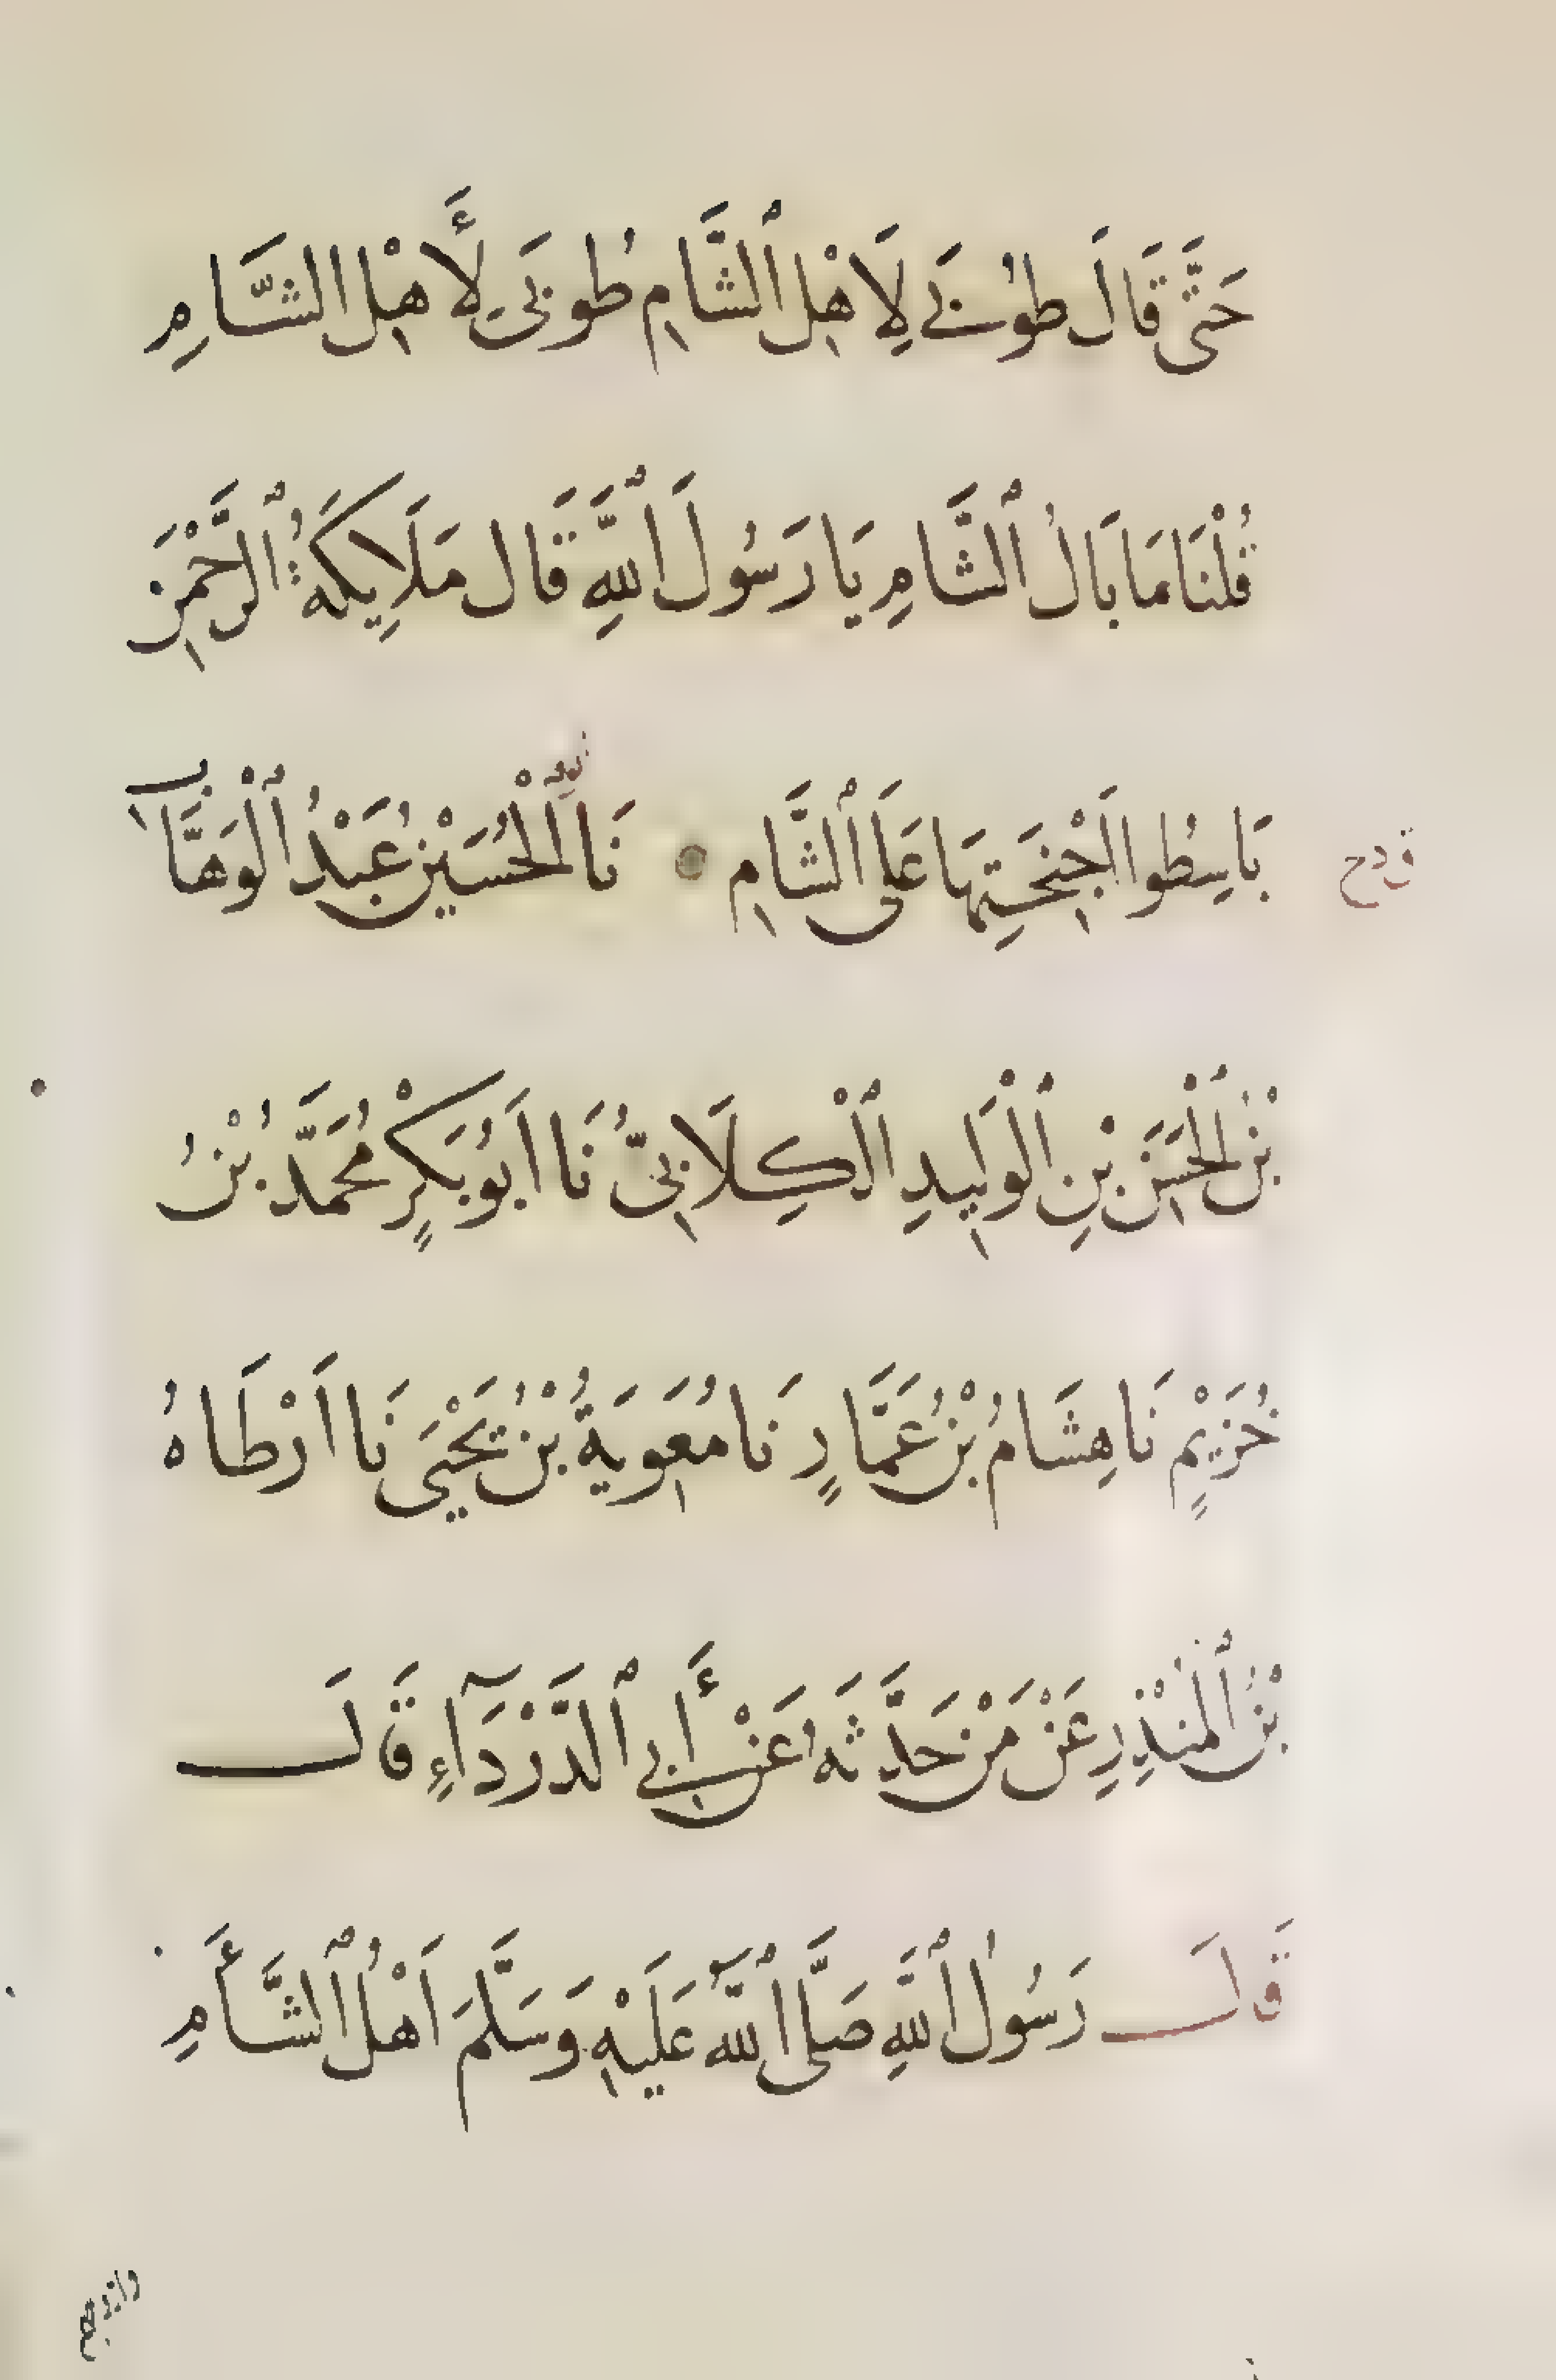 حَتَّى قَالَ طُوبَى لِأَهْلِ ٱلشَّامِ طُوبَى لِأَهْلِ الشَّامِ
قُلْنَا مَا بَالُ ٱلشَّامِ يَا رَسُولَ ٱللَّهِ قَالَ مَلَايِكَةُ ٱلرَّحْمٰنِ
بَاسِطُوا اَجْنِحَتِهَا عَلَى ٱلشَّامِ نَا ٱلْحُسَيْنِ عَبْدُ ٱلْوَهَّابِ
بْنُ ٱلْحَسَنِ بْنِ ٱلْوَلِيدِ ٱلْكِلَابِىُّ نَا اَبُو بَكْرٍ مُحَمَّدُ بْنُ
خُزَيْمٍ نَا هِشَامُ بْنُ عَمَّارٍ نَا مُعٰوِيَةُ بْنُ يَحْيَى نَا اَرْطَاهُ
بْنُ ٱلْمُنْذِرِ عَنْ مَنْ حَدَّثَهُ عَنْ أَبِي ٱلدَّرْدَآءِ قَالَ
قَالَ رَسُولُ ٱللَّهِ صَلَّى ٱللَّهُ عَلَيْهِ وَسَلَّمَ اَهْلُ ٱلشَّأَمِ